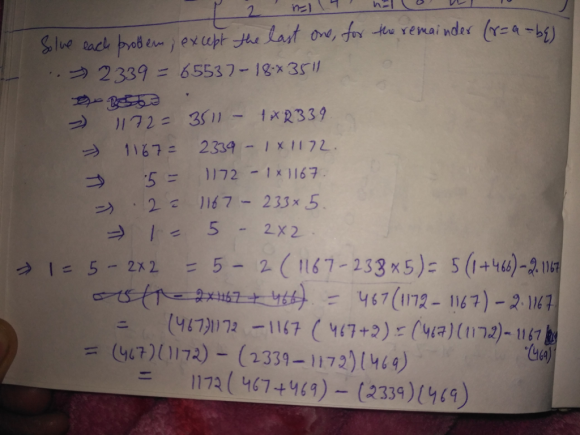 2 n=1 n=1
Solve each problem, except the last one, for the remainder (r=a-bq)
∴ ⇒ 2339 = 65537 - 18×3511
⇒ 1172 = 3511 - 1×2339
⇒ 1167 = 2339 - 1×1172.
⇒ 5 = 1172 - 1×1167.
⇒ 2 = 1167 - 233×5.
⇒ 1 = 5 - 2×2.
⇒ 1 = 5 - 2×2 = 5 - 2(1167-233×5) = 5(1+466)-2.1167
= 5(1 - 2×1167 + 466) = 467(1172-1167)-2.1167
= (467)1172 - 1167(467+2) = (467)(1172)-1167(469)
= (467)(1172) - (2339-1172)(469)
= 1172(467+469) - (2339)(469)